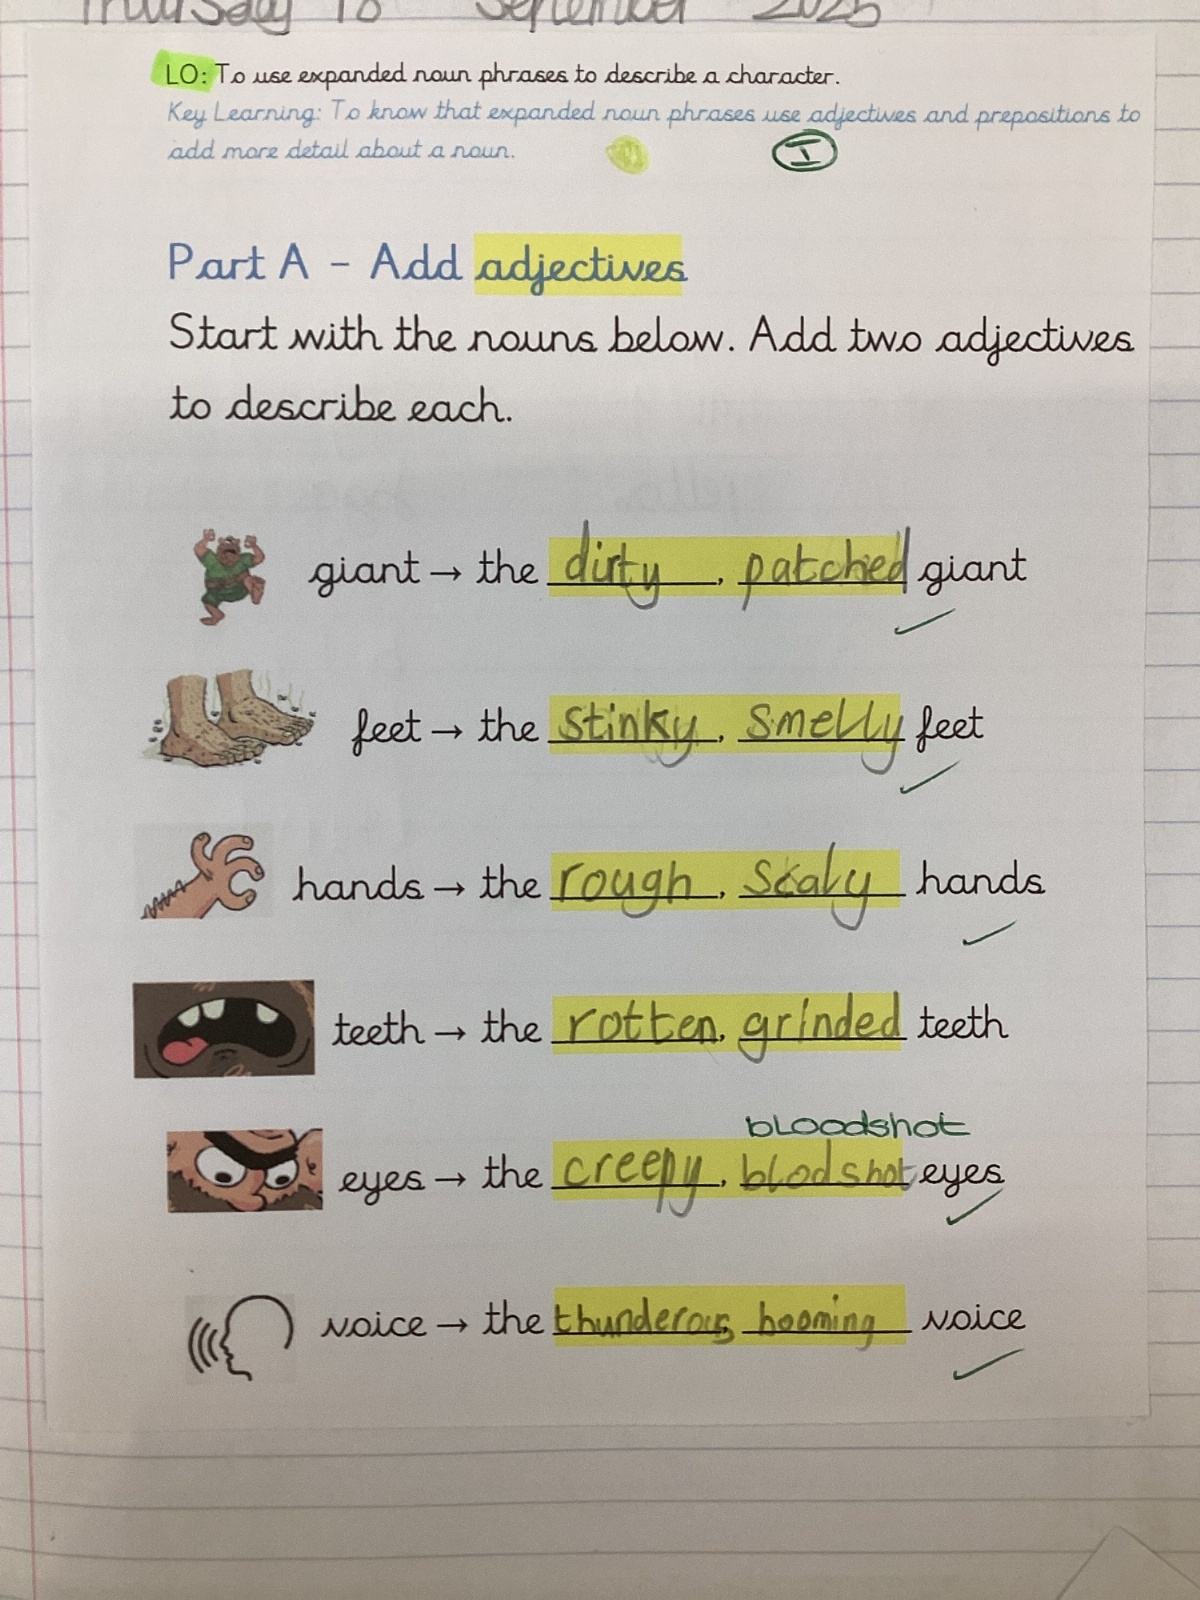 Thursday 18 September 2025
LO: To use expanded noun phrases to describe a character.
Key Learning: To know that expanded noun phrases use adjectives and prepositions to
add more detail about a noun.
I
Part A - Add adjectives
Start with the nouns below. Add two adjectives
to describe each.
giant → the dirty, patched giant
feet → the stinky, smelly feet
hands → the rough, scaly hands
teeth → the rotten, grinded teeth
bloodshot
eyes → the creepy, blodshot eyes
voice → the thunderous, booming voice